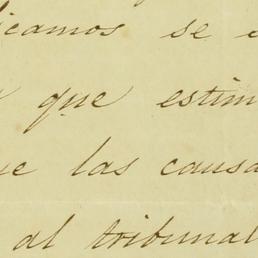 icamos se
que estim
ue las causa
al tribunal